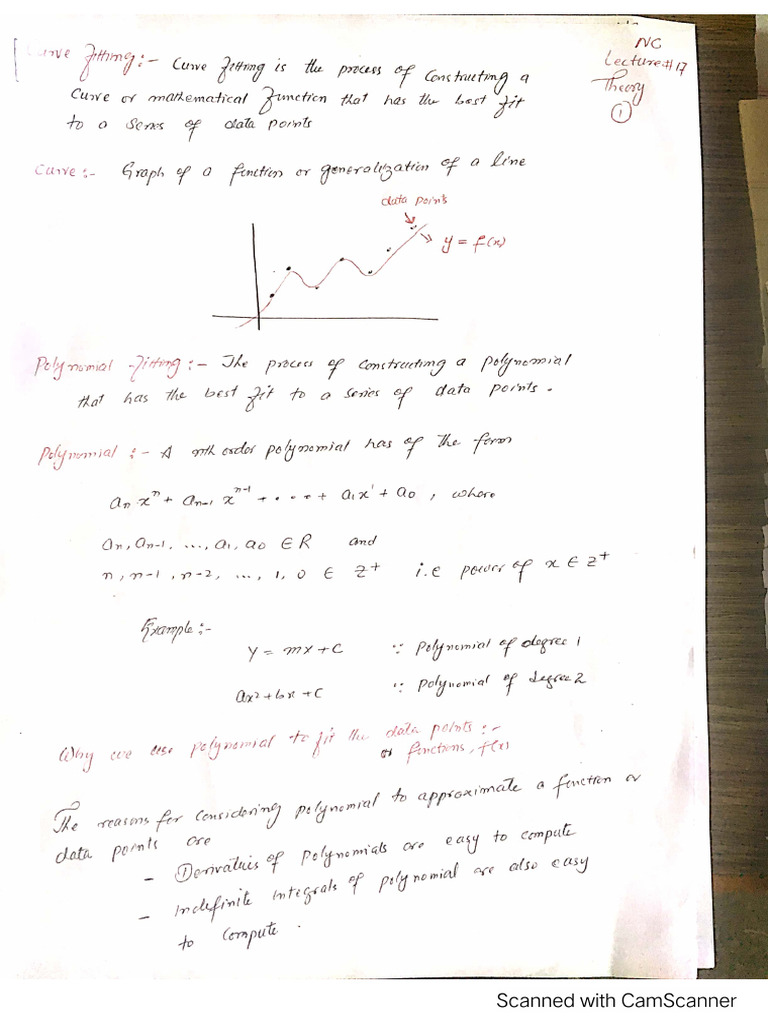 NC
Lecture#17
Theory
①
Curve Fitting:- Curve Fitting is the process of Constructing a
Curve or mathematical Function that has the best fit
to a series of data points
Curve:- Graph of a function or generalization of a line
data points
y = f(x)
Polynomial Fitting:- The process of constructing a polynomial
that has the best fit to a series of data points.
Polynomial:- A nth order polynomial has of the form
aₙ xⁿ + aₙ₋₁ xⁿ⁻¹ + .... + a₁x¹ + a₀, where
aₙ, aₙ₋₁, ..., a₁, a₀ ∈ R and
n, n-1, n-2, ..., 1, 0 ∈ Z⁺ i.e power of x ∈ Z⁺
Example:-
y = mx + c ∵ Polynomial of degree 1
ax² + bx + c ∵ Polynomial of degree 2
Why we use polynomial to fit the data points:-
or functions, f(x)
The reasons for considering polynomial to approximate a function or
data points are
- ① Derivatives of Polynomials are easy to compute
- Indefinite Integrals of polynomial are also easy
to compute.
Scanned with CamScanner